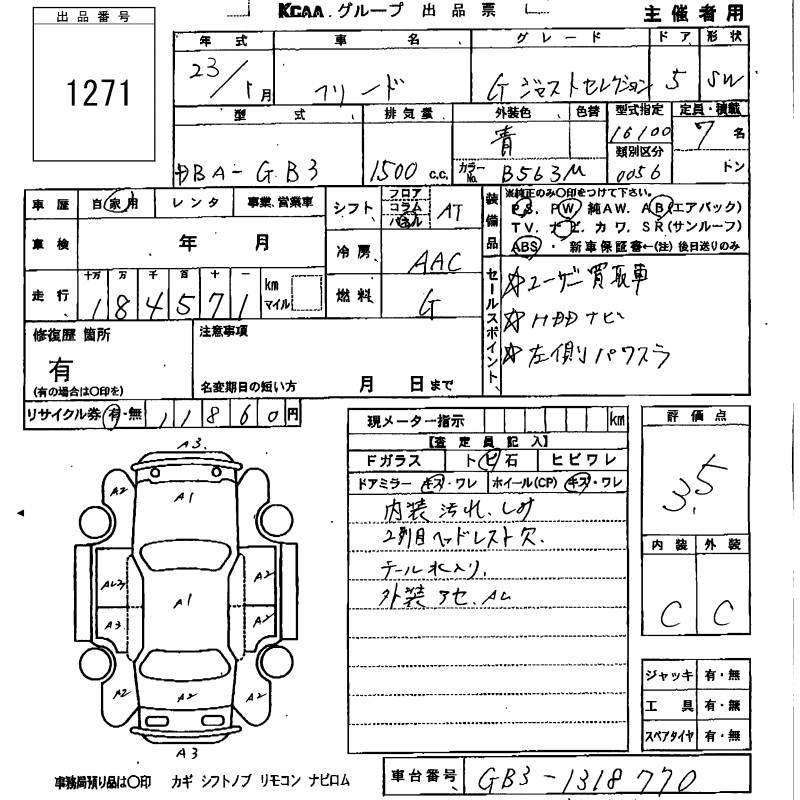 KCAA グループ 出品票 主催者用
出品番号
1271
年式 車名 グレード ドア 形状
23/1月 フリード G ジャストセレクション 5 SW
型式 排気量 外装色 色替 型式指定 定員・積載
DBA-GB3 1500 c.c. 青 16100 7名
カラーNo. B563M 類別区分 0056 トン
車歴 自家用 レンタ 事業、営業車
シフト フロア コラム パネル AT
装備品 ※純正のみ○印をつけて下さい。
PS. PW 純AW. AB(エアバック)
TV. ナビ. カワ. SR(サンルーフ)
ABS・新車保証書←(注) 後日送りのみ
車検 年 月
冷房 AAC
走行 十万 万 千 百 十 一
184571 km マイル
燃料 G
セールスポイント
☆ユーザー買取車
☆HDDナビ
☆左側パワスラ
修復歴 箇所
有
(有の場合は○印を)
注意事項
名変期日の短い方 月 日まで
リサイクル券 有・無 11860円
現メーター指示 km
【査定員記入】
Fガラス トビ石 ヒビワレ
ドアミラー キズ・ワレ ホイール(CP) キズ・ワレ
内装 汚れ、しみ
2列目ヘッドレスト欠.
テール水入り.
外装 アセ. AL
評価点
3.5
内装 外装
C C
ジャッキ 有・無
工具 有・無
スペアタイヤ 有・無
A3.
A2 A1
AL3 A1 A2
A3. A2
A2 A2 A2
A3
事務局預り品は○印 カギ シフトノブ リモコン ナビロム
車台番号 GB3-1318770